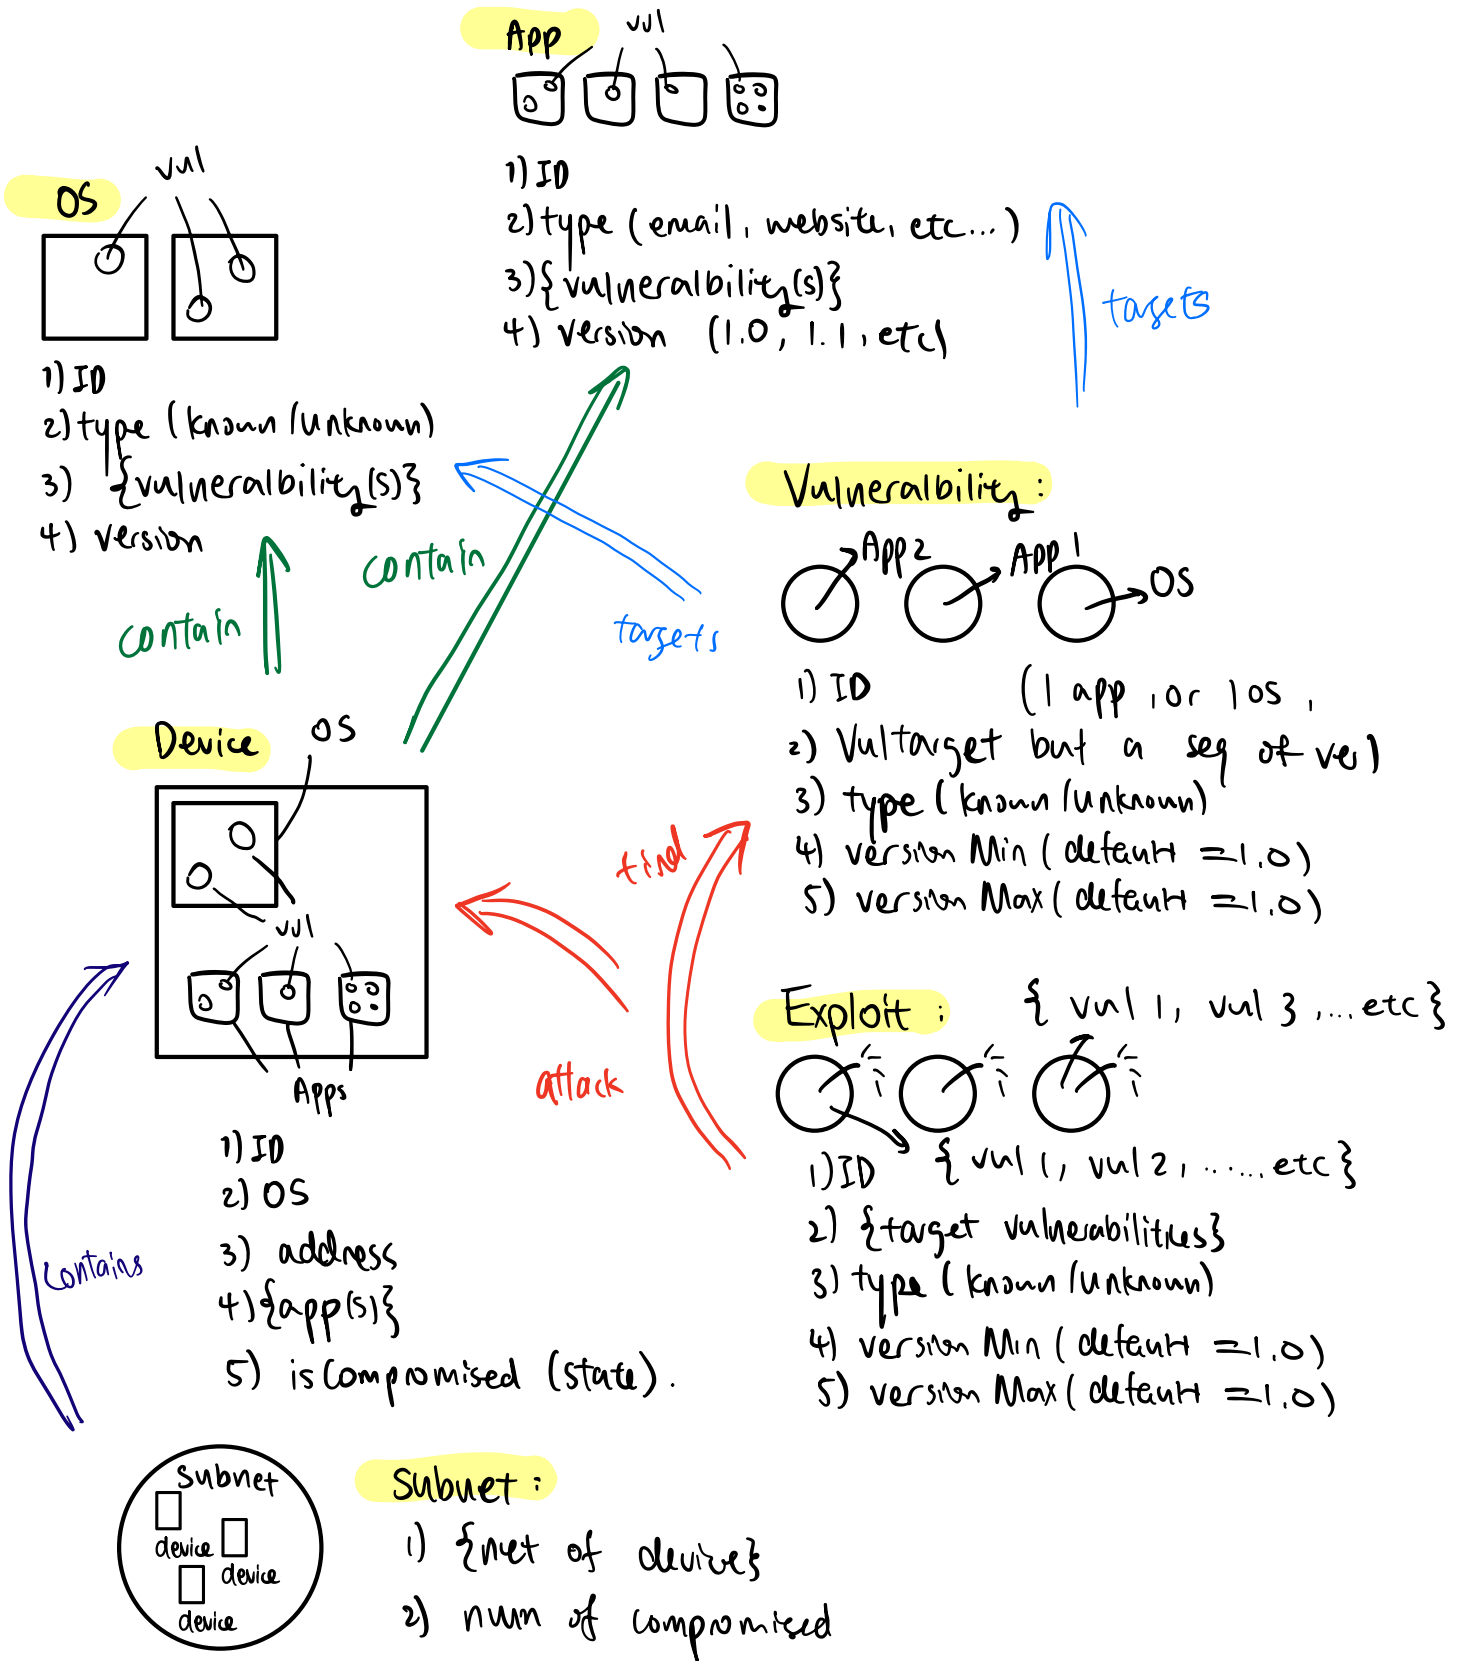 App
vul
1) ID
2) type (email, website, etc...)
3) {vulneralbility(s)}
4) version (1.0, 1.1, etc)
targets
OS
vul
1) ID
2) type (known/unknown)
3) {vulneralbility(s)}
4) version
contain
contain
targets
Vulneralbility:
App 2
App 1
OS
1) ID (1 app, or 1 OS,
2) Vul target but a seq of ver)
3) type (known/unknown)
4) version Min (default = 1.0)
5) version Max (default = 1.0)
Device
OS
vul
Apps
1) ID
2) OS
3) address
4) {app(s)}
5) is compromised (state).
find
attack
Exploit:
{ vul 1, vul 3, ... etc }
1) ID { vul 1, vul 2, ...... etc }
2) {target vulnerabilities}
3) type (known/unknown)
4) version Min (default = 1.0)
5) version Max (default = 1.0)
contains
Subnet
device
device
device
Subnet:
1) {net of device}
2) num of compromised